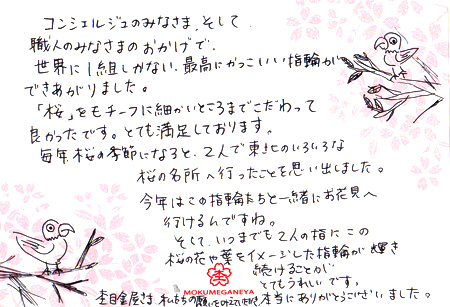 コンシェルジュのみなさま、そして
職人のみなさまのおかげで、
世界に1組しかない、最高にかっこいい指輪が
できあがりました。
「桜」をモチーフに細かいところまでこだわって
良かったです。とても満足しております。
毎年桜の季節になると、2人で東北のいろいろな
桜の名所へ行ったことを思い出しました。
今年はこの指輪たちと一緒にお花見へ
行けるんですね。
そして、いつまでも2人の指にこの
桜の花や葉をイメージした指輪が輝き
続けることが
とてもうれしいです。
MOKUMEGANEYA
杢目金屋さま、私たちの願いを叶えていただき、本当にありがとうございました。